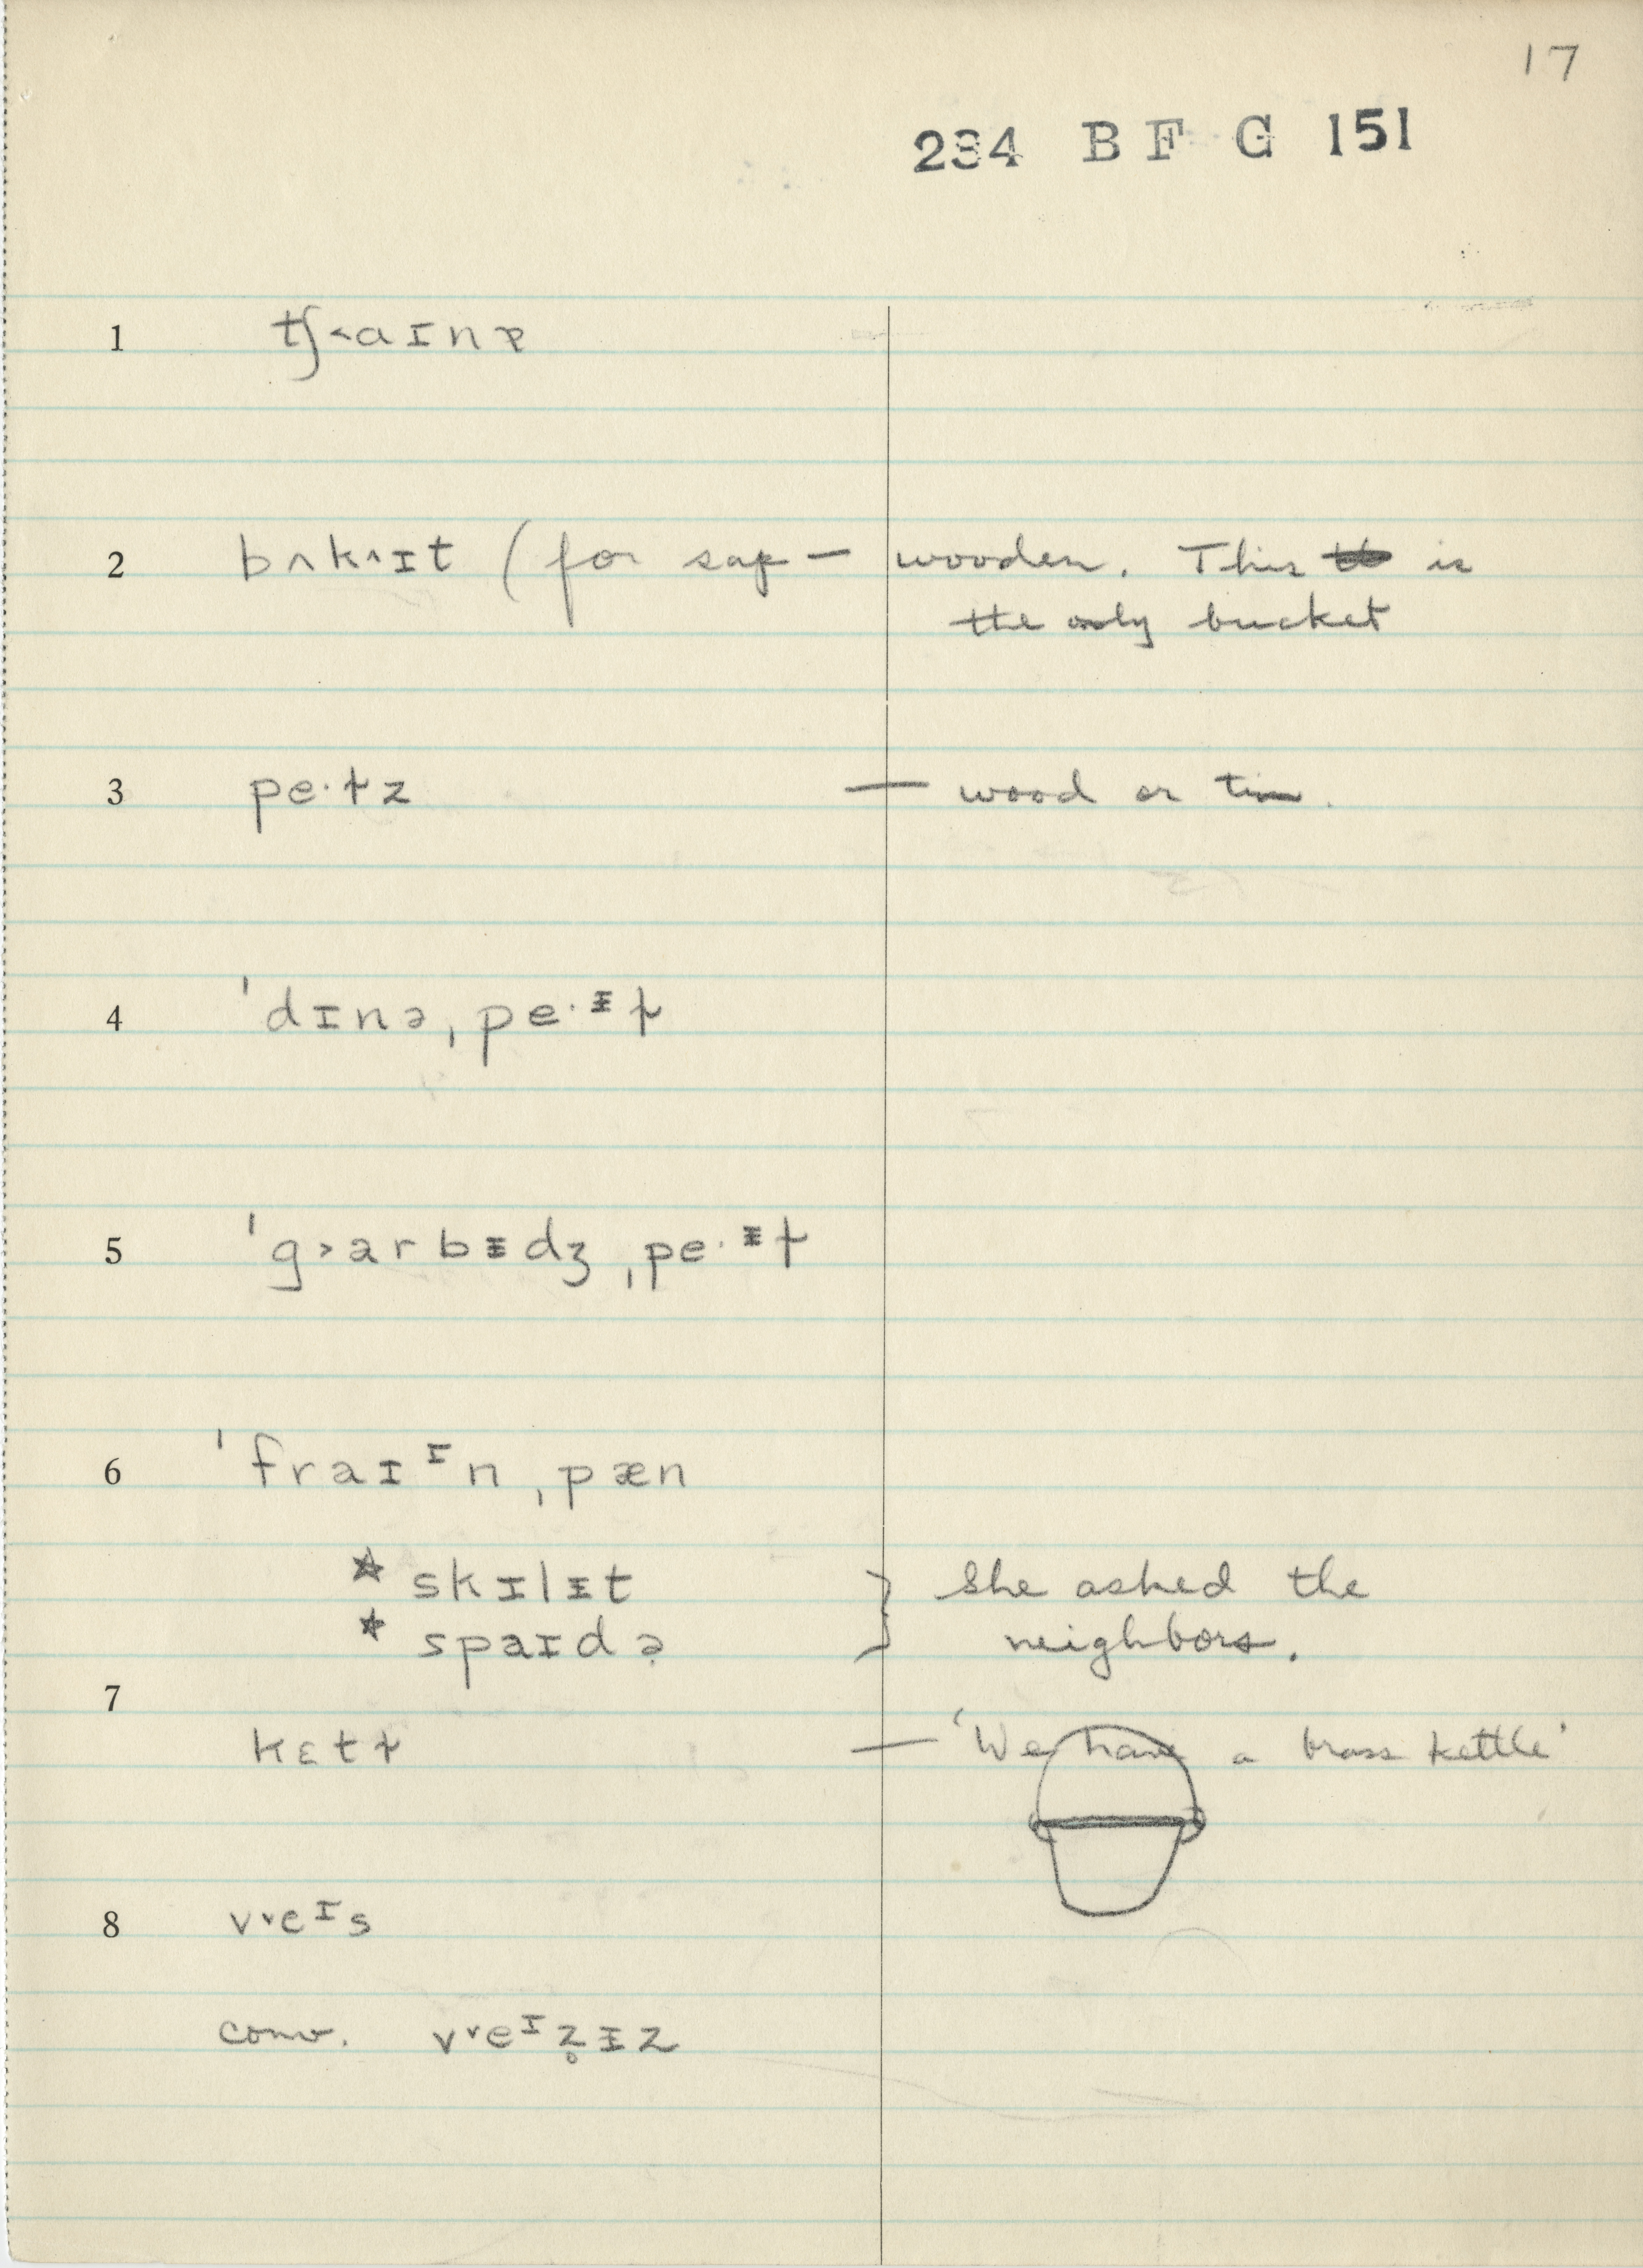 17
234 BF G 151
1 tʃ˂aɪnə
2 bʌk^ɪt (for sap — wooden. This is
the only bucket
3 pe·ɫz — wood or tin.
4 ˈdɪnəˌpe·ᵻɫ
5 ˈg˃arbᵻdʒˌpe·ᵻɫ
6 ˈfraɪᶦnˌpæn
* skɪlᵻt } She asked the
* spaɪdə̣ neighbors.
7
kɛtɫ — 'We have a brass kettle'
8 v˅eᶦs
conv. v˅eᶦz̥ᵻz